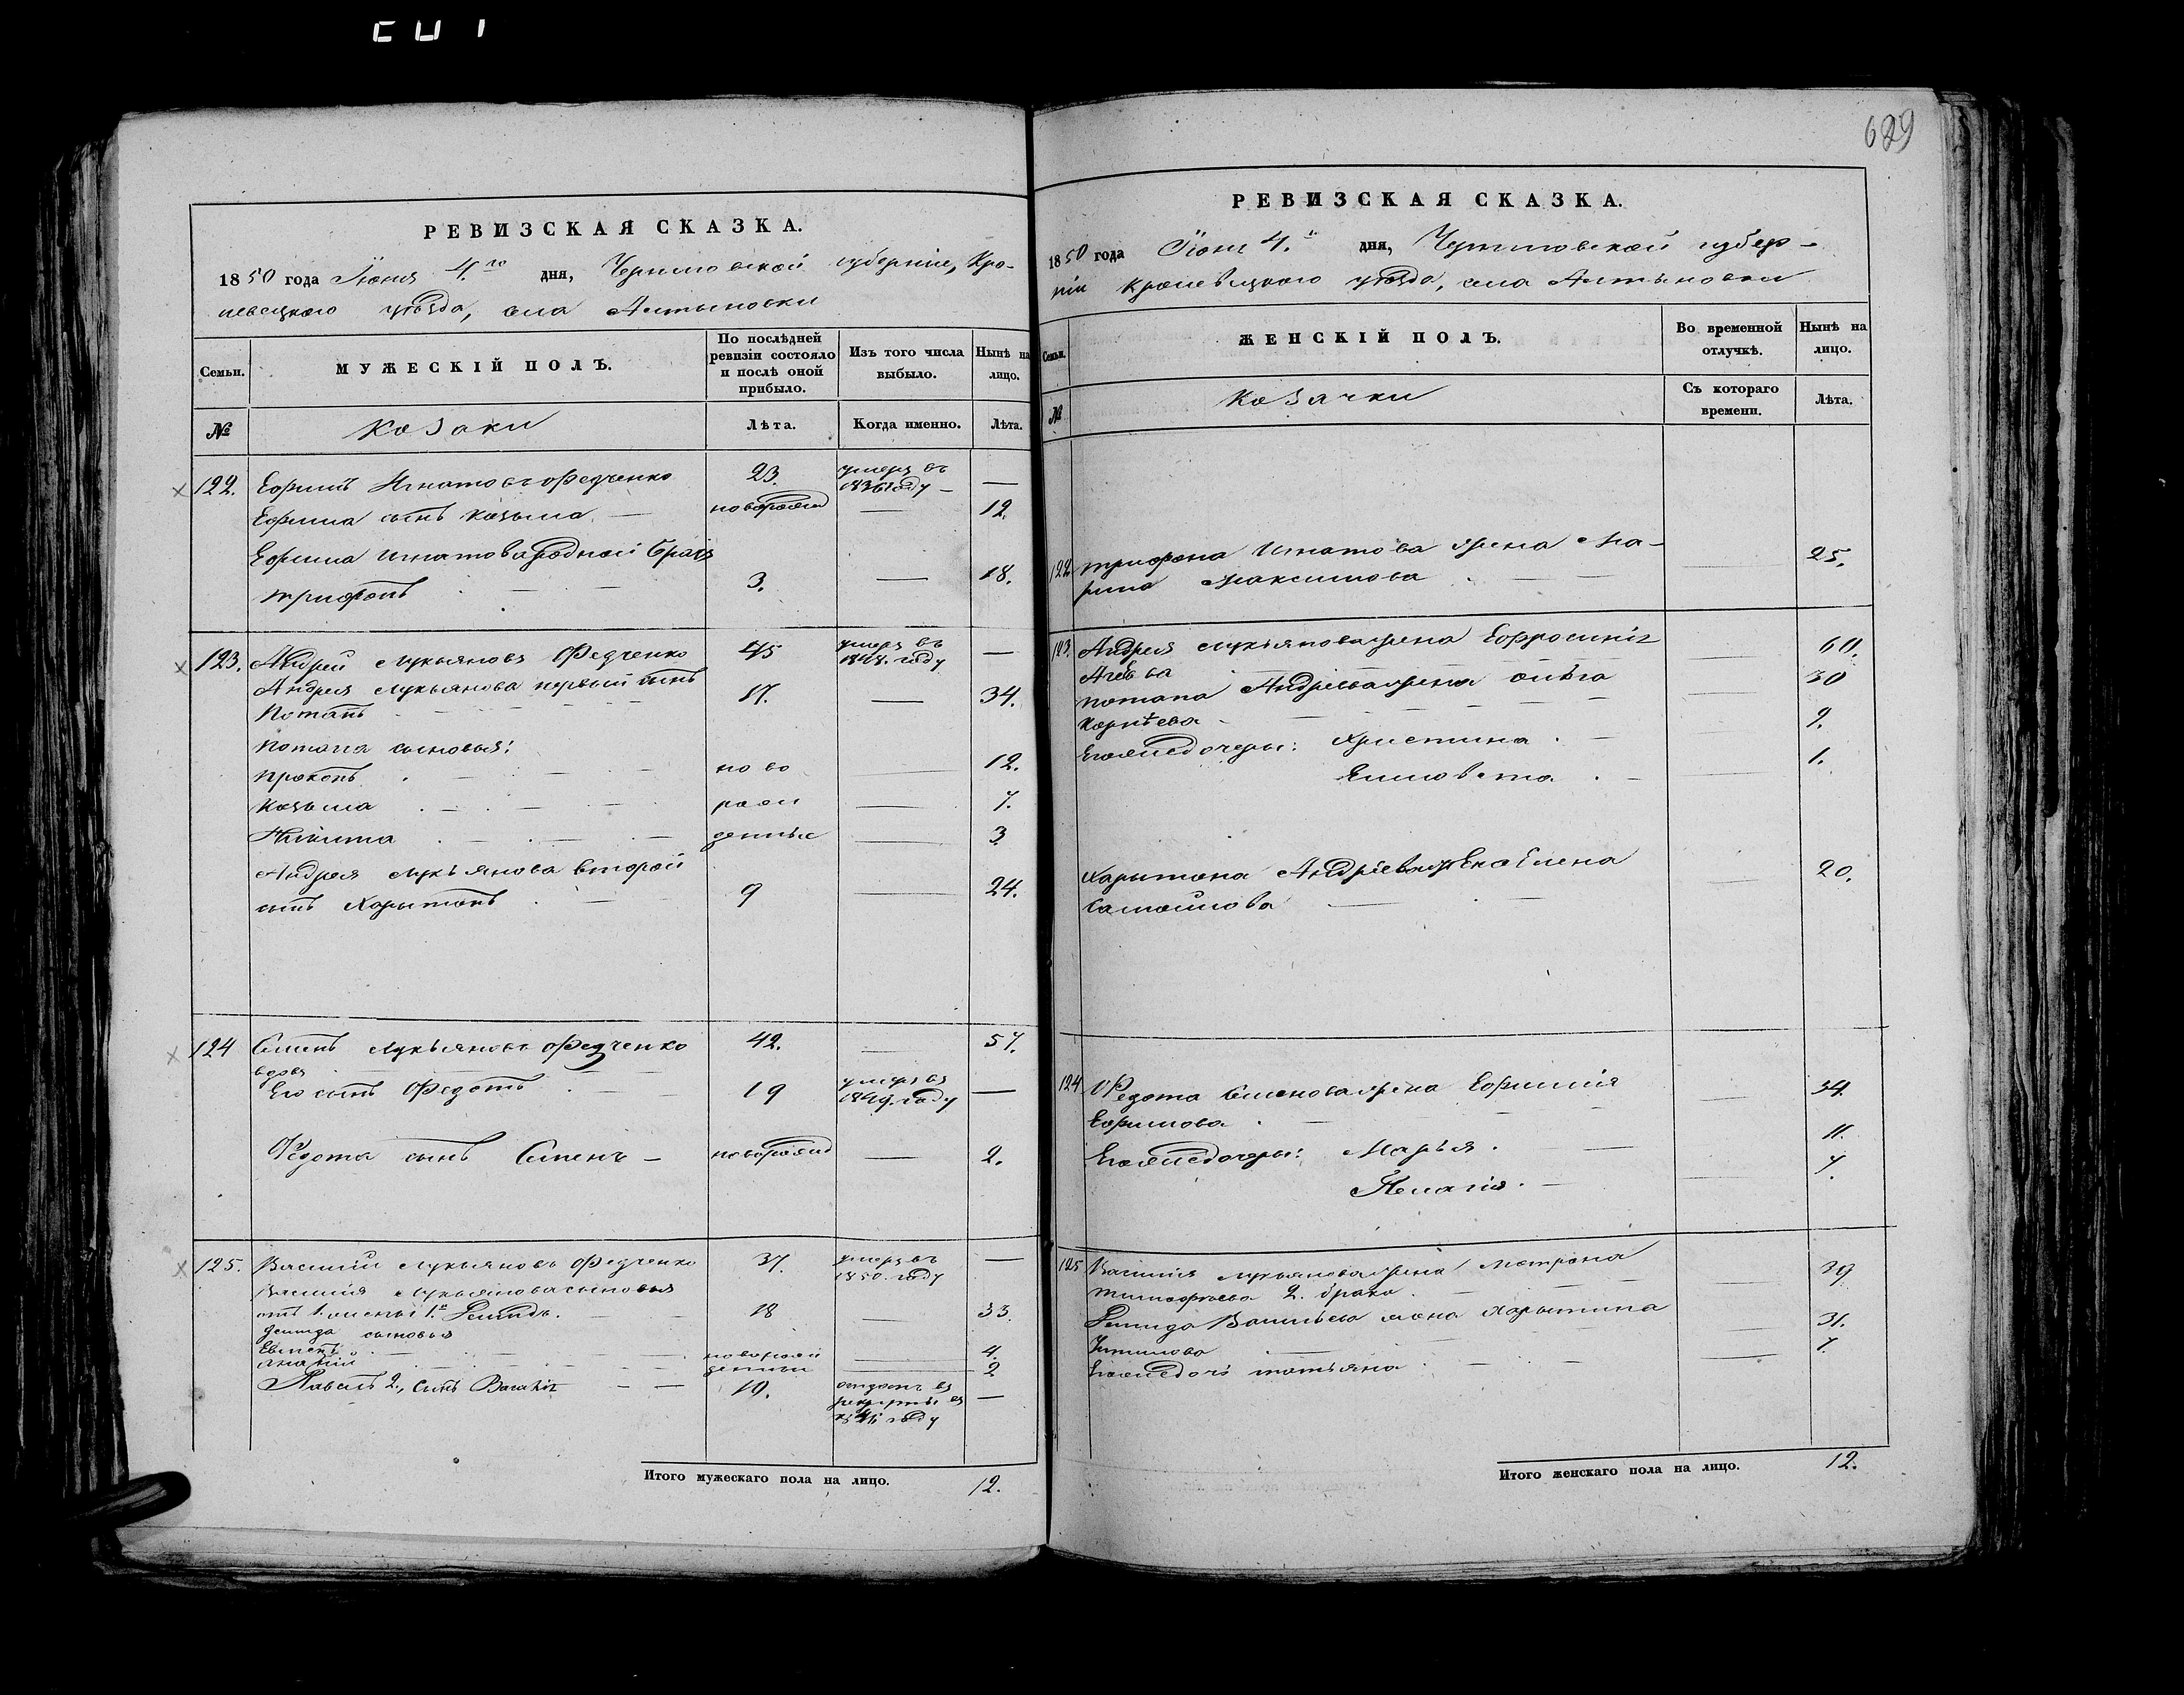 689
РЕВИЗСКАЯ СКАЗКА.
1850 года Июня 4.го дня, Черниговской губерніи, Кро-
левецкаго уѣзда, села Алтыновки
Семьи.
МУЖЕСКІЙ ПОЛЪ.
По послѣдней ревизіи состояло и послѣ оной прибыло.
Изъ того числа выбыло.
Нынѣ на лицо.
№
Козаки
Лѣта.
Когда именно.
Лѣта.
122. Ефимъ Игнатовъ Федченко 23. умеръ въ 1836 году —
Ефима сынъ Козьма — новорожд — 12.
Ефима Игнатова родной братъ
Трифонъ 3. — 18.
123. Андрей Лукьяновъ Федченко 45 умеръ въ 1848. году —
Андрея Лукьянова первый сынъ
Потапъ 17. — 34.
Потапа сыновья:
Прокопъ ново — 12.
Козьма рож — 7.
Никита денные — 3
Андрея Лукьянова второй
сынъ Харитонъ 9 — 24.
124 Семенъ Лукьяновъ Федченко 42. — 57.
вдовъ
Его сынъ Федотъ 19 умеръ въ 1849. году —
Федота сынъ Семенъ — новорожд — 2.
125. Василий Лукьяновъ Федченко 37. умеръ въ 1850. году —
Василия Лукьянова сыновья
отъ 1. жены 1.й Демидъ. 18 — 33.
Демида сыновья
новорож — 4.
Ананій денныи — 2
Павелъ 2., сынъ Василія — 10. отданъ въ рекруты въ году —
Итого мужескаго пола на лицо. 12.
РЕВИЗСКАЯ СКАЗКА.
1850 года Июня 4. дня, Черниговской губер-
ніи Кролевецкаго уѣзда, села Алтыновки
Семьи.
ЖЕНСКІЙ ПОЛЪ.
Во временной отлучкѣ.
Нынѣ на лицо.
№
Козачки
Съ котораго времени.
Лѣта.
122. Трифона Игнатова жена Ма-
рина Максимова — 25.
123. Андрея Лукьянова жена Ефросинія — 60.
Потапа Андреева жена Ольга — 30
Корнѣева
Егожъ дочери: Христина — 9.
Елисовета — 1.
Харитона Андреева жена Елена — 20.
Самойлова
124 Федота Семенова жена Ефимія — 34.
Ефимова
Егожъ дочери: Марья — 11.
Пелагія — 7.
125 Василія Лукьянова жена Матрона — 39
Тимофѣева 2. брака
Демида Васильева жена Харитина — 31.
Егожъ дочь Татьяна — 7.
Итого женскаго пола на лицо. 12.